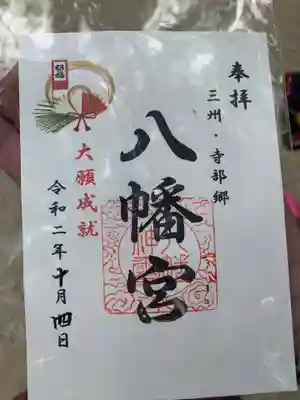 奉拝
三州・寺部郷
八幡宮
大願成就
令和二年十月四日